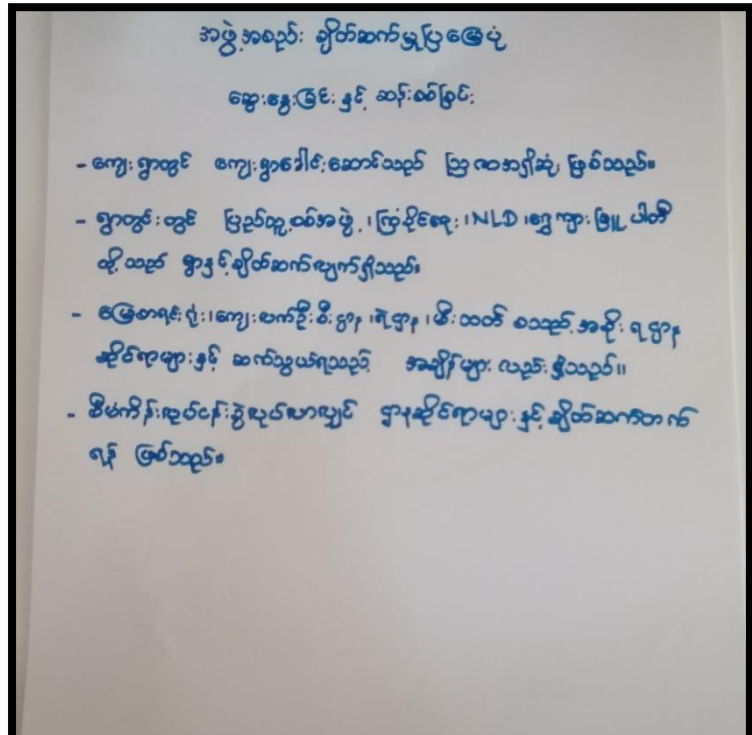 အဖွဲ့အစည်း ချိတ်ဆက်မှုပြမြေပုံ
ဆွေးနွေးခြင်း နှင့် ဆန်းစစ်ခြင်း
- ကျေးရွာတွင် ကျေးရွာခေါင်းဆောင်သည် ဩဇာအရှိဆုံး ဖြစ်သည်။
- ရွာတွင်းတွင် ပြည်သူ့စစ်အဖွဲ့၊ ကြံ့ခိုင်ရေး၊ NLD၊ ကျားဖြူ ပါတီ
တို့သည် ရွာနှင့်ချိတ်ဆက်လျက်ရှိသည်။
- မြေစာရင်းရုံး၊ ကျေးလက်ဦးစီးဌာန၊ ရဲဌာန၊ မီးသတ် စသည့် အစိုးရဌာန
ဆိုင်ရာများနှင့် ဆက်သွယ်ရသည့် အချိန်များ လည်းရှိသည်။
- စီမံကိန်းလုပ်ငန်းခွဲလုပ်လာလျှင် ဌာနဆိုင်ရာများနှင့်ချိတ်ဆက်တက်
ရန် ဖြစ်သည်။